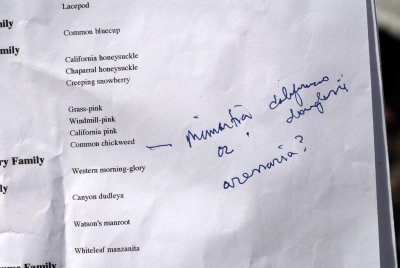 Lacepod
Common bluecup
Family
California honeysuckle
Chaparral honeysuckle
Creeping snowberry
Grass-pink
Windmill-pink
California pink
Common chickweed — minuartia californica
or douglasii
arenaria?
ry Family
Western morning-glory
ly
Canyon dudleya
Watson's manroot
Whiteleaf manzanita
Family